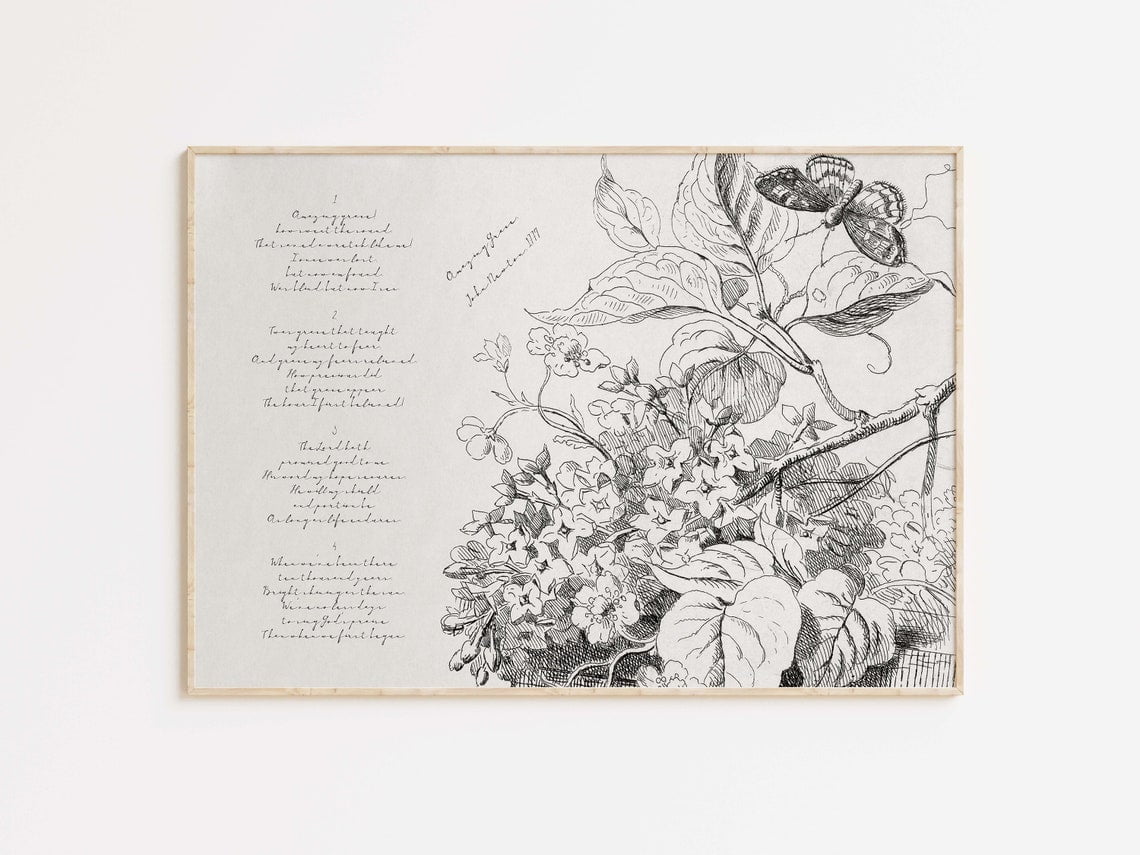 1
Amazing grace!
how sweet the sound
That saved a wretch like me!
I once was lost
but now am found
Was blind but now I see
2
Twas grace that taught
my heart to fear
And grace my fears relieved
How precious did
that grace appear
The hour I first believed!
3
The Lord hath
promised good to me
His word my hope secures
He will my shield
and portion be
As long as life endures
4
When we've been there
ten thousand years
Bright shining as the sun
We've no less days
to sing God's praise
Than when we first begun
Amazing Grace
John Newton 1779